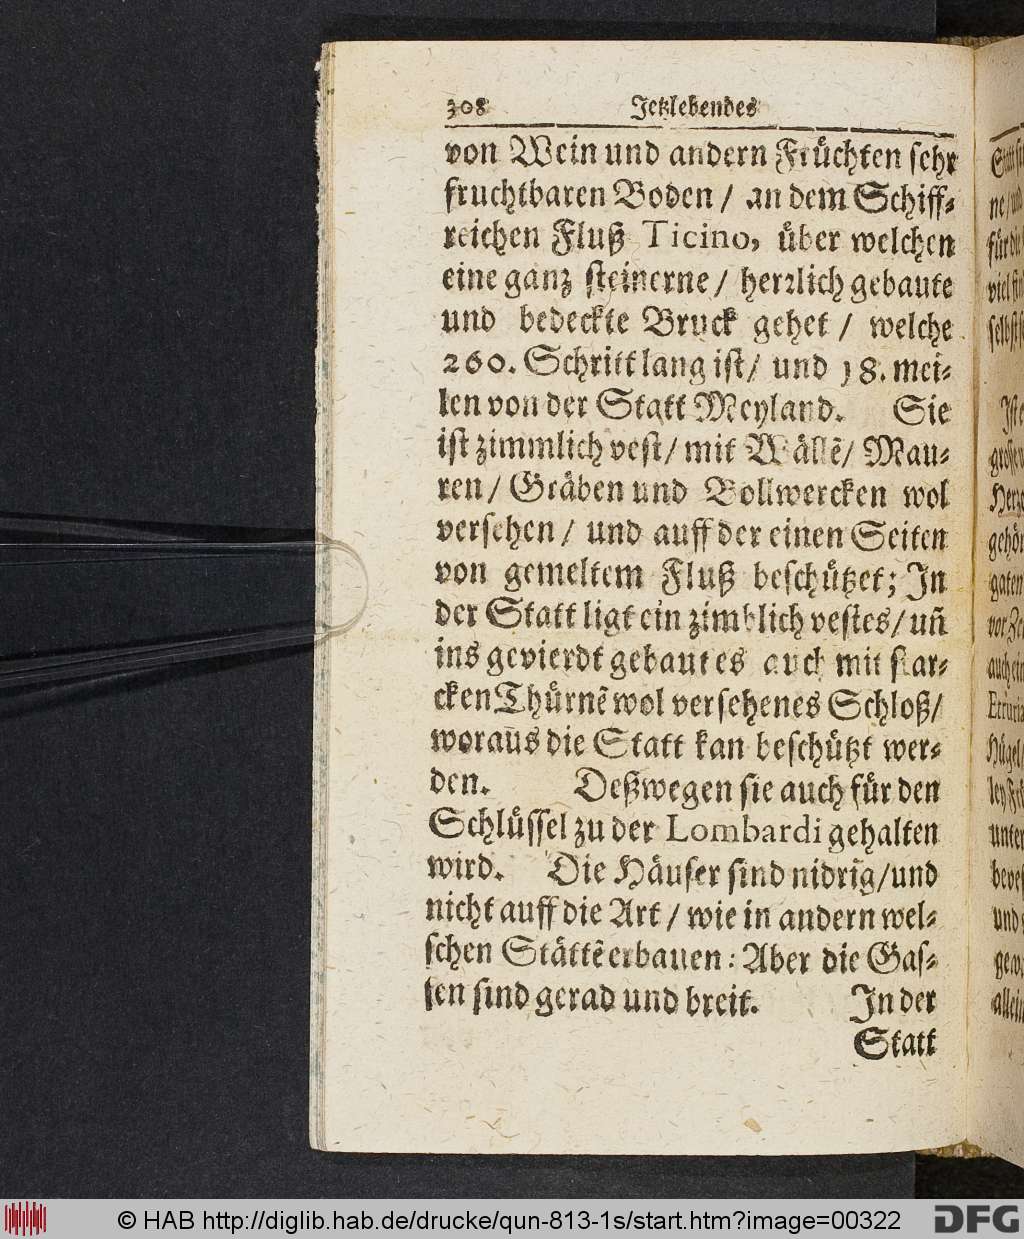 308 Jetzlebendes
von Wein und andern Früchten sehr
fruchtbaren Boden / an dem Schiff-
reichen Fluß Ticino, über welchen
eine ganz steinerne / herrlich gebaute
und bedeckte Bruck gehet / welche
260. Schritt lang ist / und 18. mei-
len von der Statt Meyland. Sie
ist zimmlich vest / mit Wällẽ / Mau-
ren / Gräben und Bollwercken wol
versehen / und auff der einen Seiten
von gemeltem Fluß beschützet; In
der Statt ligt ein zimblich vestes / uñ
ins gevierdt gebautes auch mit star-
cken Thürnẽ wol versehenes Schloß /
woraus die Statt kan beschützt wer-
den. Deßwegen sie auch für den
Schlüssel zu der Lombardi gehalten
wird. Die Häuser sind nidrig / und
nicht auff die Art / wie in andern wel-
schen Stättẽ erbauen: Aber die Gas-
sen sind gerad und breit. In der
Statt
© HAB http://diglib.hab.de/drucke/qun-813-1s/start.htm?image=00322
DFG